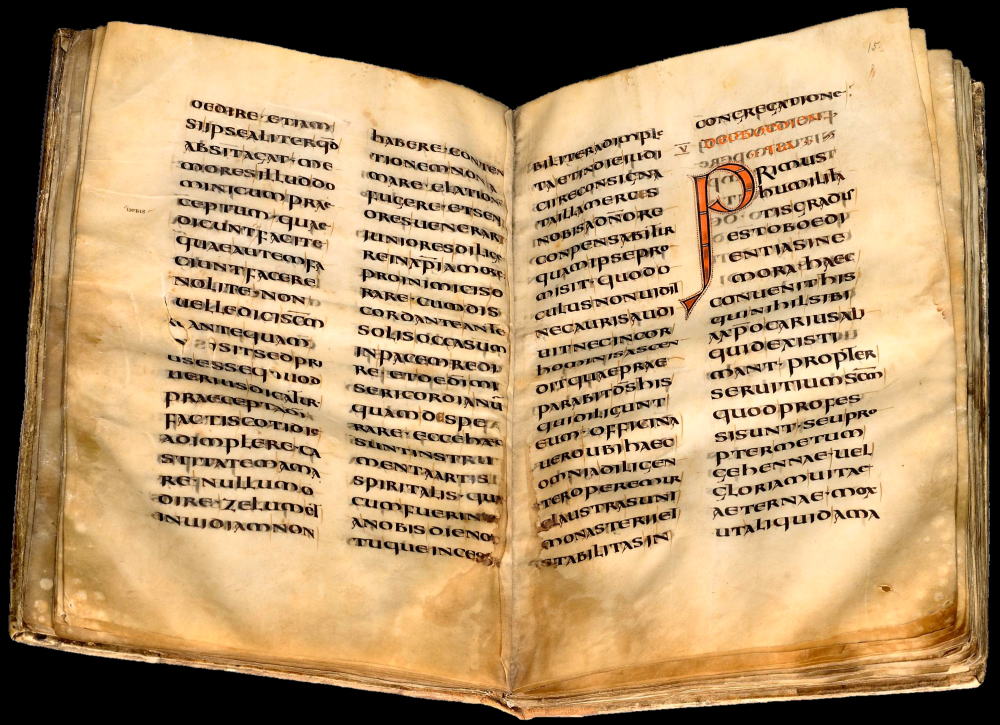 OEDIRE·ETIAM
SIIPSEALITERQD
ABSITAGAT·ME
MORESILLUDDO
MINICUMPRAE
CEPTUM·QUAE
DICUNTFACITE
QUAEAUTEMFA
CIUNTFACERE
NOLITE·NON
UELLEDICISCM
ANTEQUAM
SITSEDPRI
USESSEQUOD
UERIUSDICATUR
PRAECEPTA
FACTISCOTIDIE
ADIMPLERECA
STITATEMAMA
RE·NULLUMO
DIRE·ZELUMET
INUIDIAMNON
HABERE·CONTEN
TIONEMNONA
MARE·ELATION
FUGERE·ETSEN
ORESUENERARI
IUNIORESDILIGE
REINXPIAMORE
PROINIMICISO
RARE·CUMDIS
CORDANTEANTE
SOLISOCCASUM
INPACEMREDI
RE·ETDEDIMI
SERICORDIANU
QUAMDESPE
RARE·ECCEHAE
SUNTINSTRU
MENTAARTIS
SPIRITALIS·QUE
CUMFUERIN
ANOBISDIENOC
TUQUEINCESS
BILITERADIMPL
TAETINDIEIUDI
CIIRECONSIGNA
TAILLAMERCES
NOBISADNORE
CONPENSABITUR
QUAMIPSEPRO
MISIT·QUODO
CULUSNONUIDIT
NECAURISAUDI
UITNECINCOR
HOMINISASCEN
DITQUAEPRAE
PARABITDSHIS
QUIDILIGUNT
EUM·OFFICINA
UEROUBIHAEC
OMNIADILIGEN
TEROPEREMUR
CLAUSTRASUNT
MONASTERIIET
STABILITASIN
CONGREGATIONE
V
PRIMUS
HUMILITA
TISGRADUS
ESTOBOEDI
ENTIASINE
MORA·HAEC
CONUENITHIS
QUINIHILSIBI
AXPOCARIUSALI
QUIDEXISTI
MANT·PROPTER
SERUITIUMSCM
QUODPROFES
SISUNT·SEUPRO
PTERMETUM
GEHENNAE·UEL
GLORIAMUITAE
AETERNAE·MOX
UTALIQUIDAMA